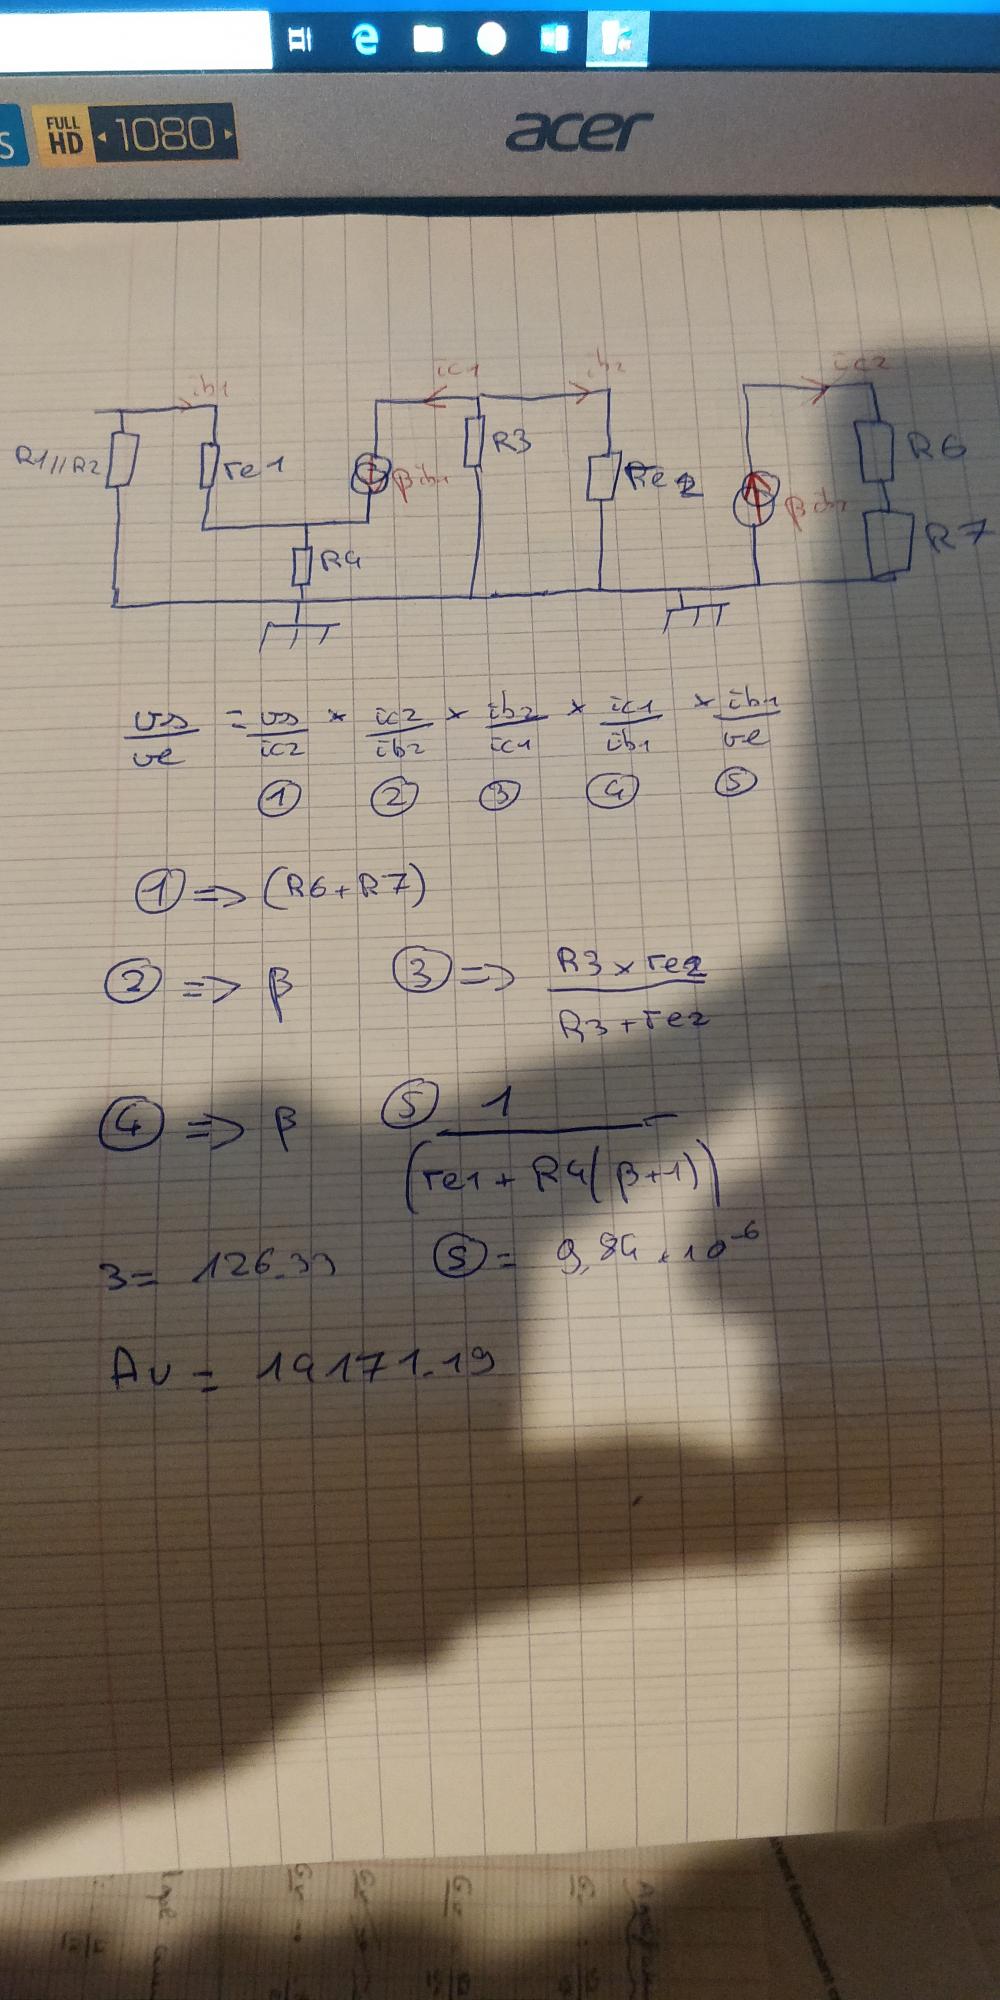 S FULL HD 1080 acer
ib1 ic1 ib2 ic2
R1//R2 re1 βib1 R3 Re2 βib2 R6
R4 R7
vs/ve = vs/ic2 × ic2/ib2 × ib2/ic1 × ic1/ib1 × ib1/ve
① ② ③ ④ ⑤
① => (R6+R7)
② => β ③ => R3 × re2 / R3 + re2
④ => β ⑤ 1 / (re1 + R4(β+1))
3 = 126.33 ⑤ = 9,84 . 10⁻⁶
Av = 14171.19